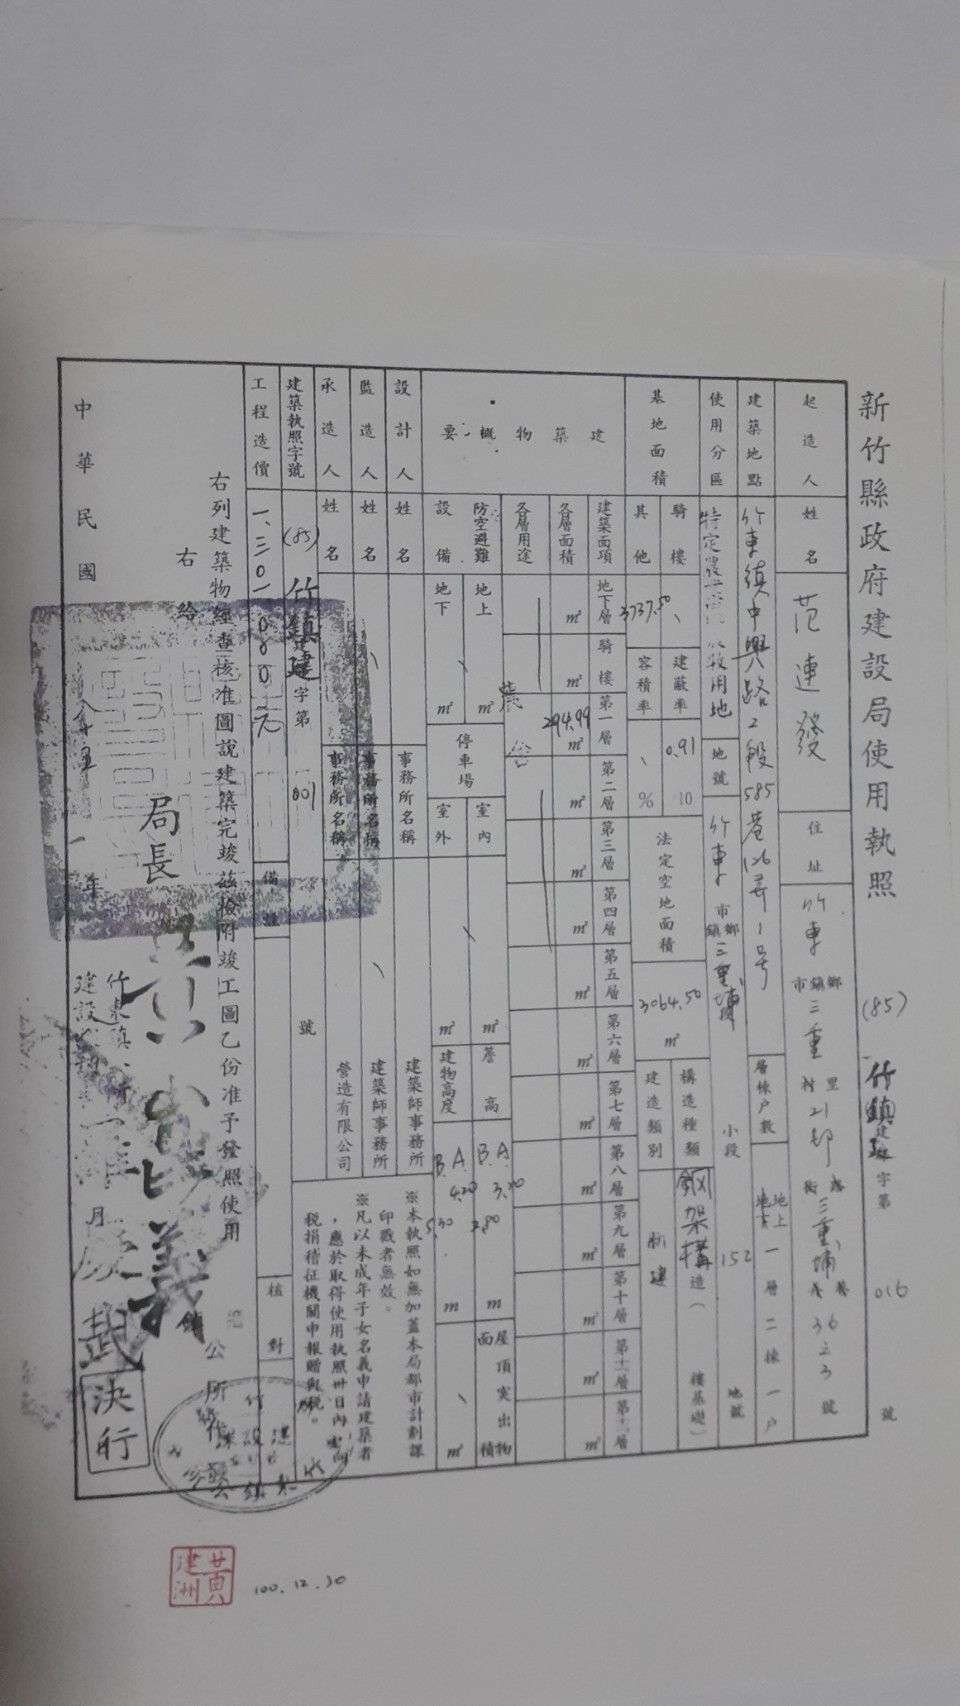 新竹縣政府建設局使用執照
(85) 竹鎮建字第 016 號
起造人 姓名 范連發 住址 竹東 市鎮鄉 三重 村里 21 鄰 三重埔 街路 巷弄 36之3 號
建築地點 竹東鎮中興路2段585巷126弄1號 層棟戶數 地上 一層二棟一戶
使用分區 特定農 用地 地號 竹東 市鎮鄉 三重埔 小段 152 地號
基地面積 騎樓 其他 3737.50
建蔽率 0.91 % 容積率 %
法定空地面積 3064.50 ㎡
構造種類 鋼架構造( 樓基礎)
建造類別 新建
建築物概要
建築面項 地下層 騎樓 第一層 第二層 第三層 第四層 第五層 第六層 第七層 第八層 第九層 第十層 第十一層
各層面積 ㎡ ㎡ 294.99 ㎡ ㎡ ㎡ ㎡ ㎡ ㎡ ㎡ ㎡ ㎡ ㎡ ㎡ ㎡
各層用途 農舍
防空避難 地上 ㎡ 停車場 室內 ㎡ 簷高 A 3.20 B 2.80 m 屋頂突出物面積 ㎡
設備 地下 ㎡ 室外 ㎡ 建物高度 A 4.20 B 5.30 m
設計人 姓名 事務所名稱 建築師事務所
監造人 姓名 事務所名稱 建築師事務所
承造人 姓名 事務所名稱 營造有限公司
※本執照如無加蓋本局都市計劃課
印戳者無效。
※凡以未成年子女名義申請建築者
,應於取得使用執照卅日內向
稅捐稽征機關申報贈與稅。
建築執照字號 (85) 竹鎮建字第 801 號
工程造價 一、三〇一、〇〇〇元 備註 核對
右列建築物經查核准圖說建築完竣茲檢附竣工圖乙份准予發照使用
右給
局長
公所
中華民國 年 月
決行
黃建洲
100.12.30